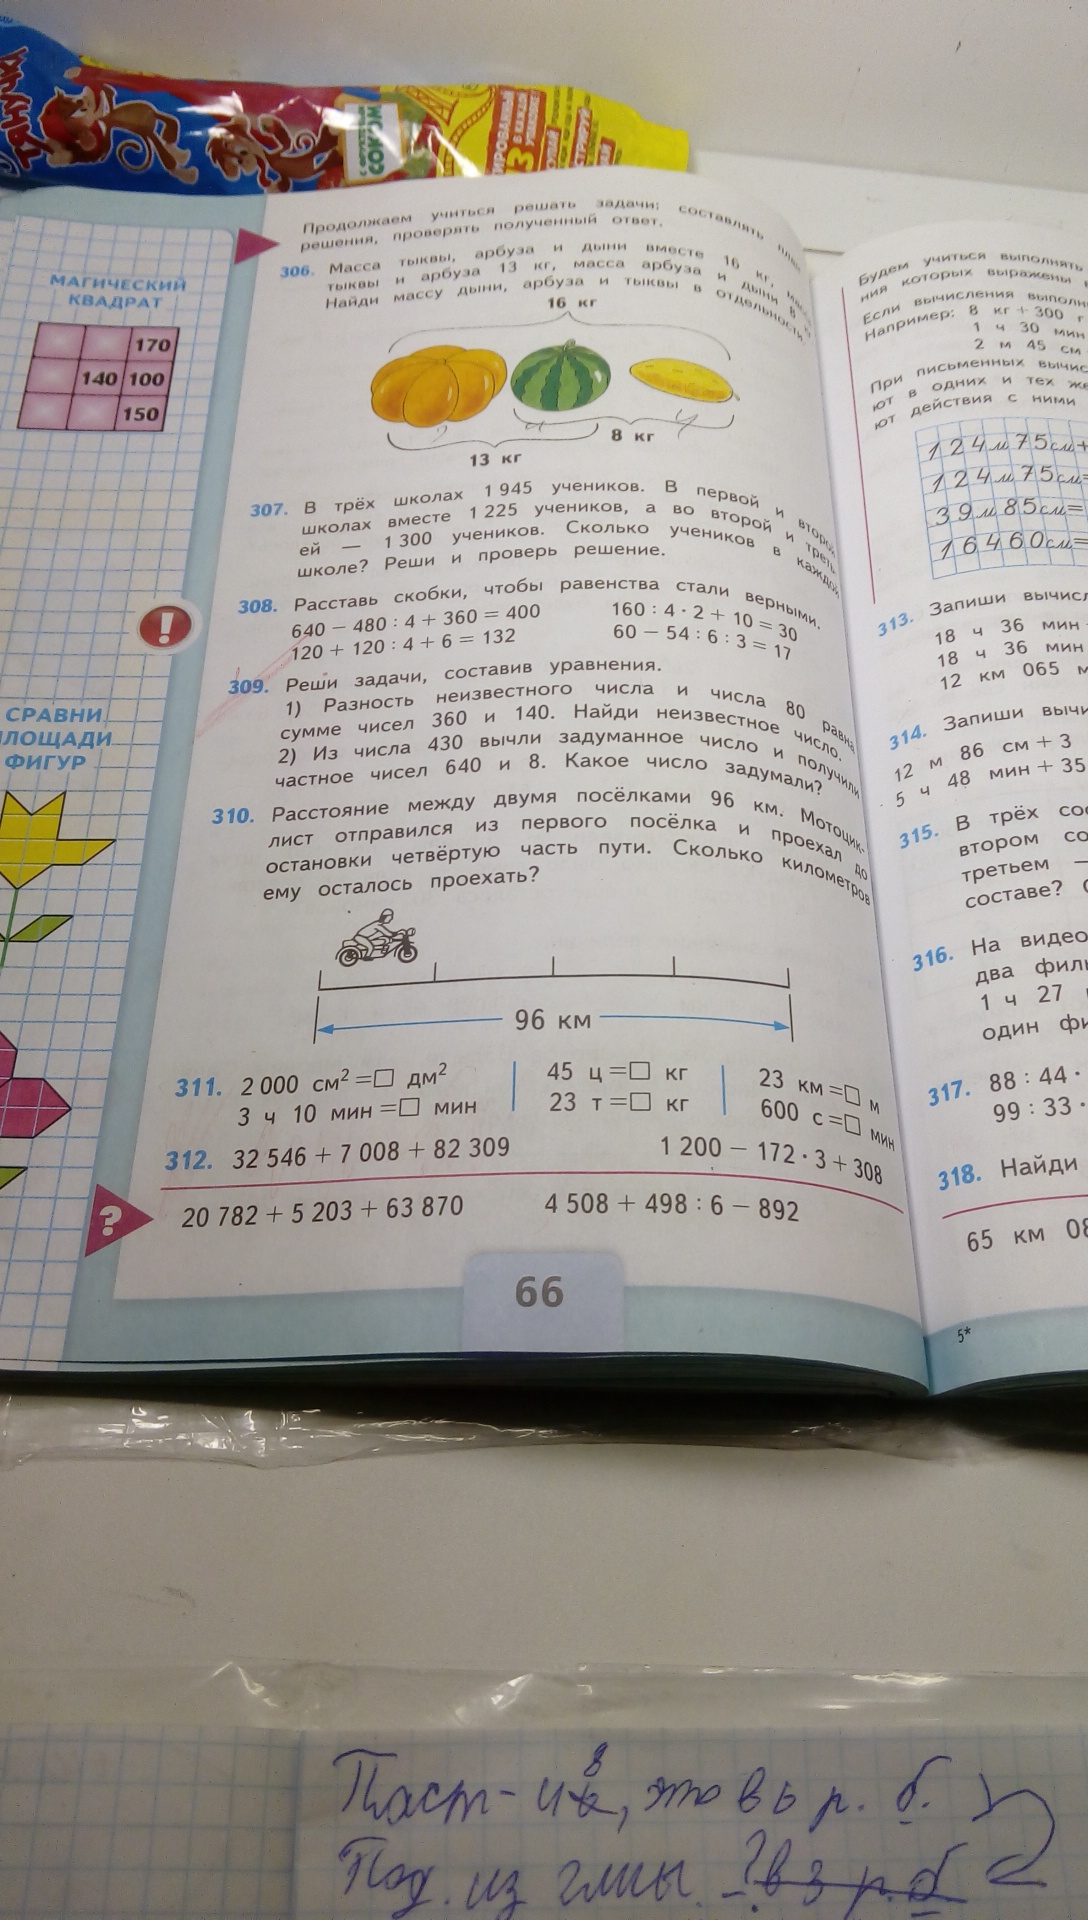 С ФРУКТОВЫМ
СОКОМ
МАГИЧЕСКИЙ
КВАДРАТ
170
140 100
150
СРАВНИ
ФИГУР
Продолжаем учиться решать задачи; составлять план
решения, проверять полученный ответ.
306. Масса тыквы, арбуза и дыни вместе 16 кг,
тыквы и арбуза 13 кг, масса арбуза и дыни 8
Найди массу дыни, арбуза и тыквы в отдельности.
16 кг
8 кг
13 кг
307. В трёх школах 1 945 учеников. В первой и второй
школах вместе 1 225 учеников, а во второй и треть-
ей — 1 300 учеников. Сколько учеников в каждой
школе? Реши и проверь решение.
308. Расставь скобки, чтобы равенства стали верными.
640 − 480 : 4 + 360 = 400 160 : 4 · 2 + 10 = 30
120 + 120 : 4 + 6 = 132 60 − 54 : 6 : 3 = 17
309. Реши задачи, составив уравнения.
1) Разность неизвестного числа и числа 80 равна
сумме чисел 360 и 140. Найди неизвестное число.
2) Из числа 430 вычли задуманное число и получили
частное чисел 640 и 8. Какое число задумали?
310. Расстояние между двумя посёлками 96 км. Мотоцик-
лист отправился из первого посёлка и проехал до
остановки четвёртую часть пути. Сколько километров
ему осталось проехать?
96 км
311. 2 000 см² =□ дм² 45 ц =□ кг 23 км =□ м
3 ч 10 мин =□ мин 23 т =□ кг 600 с =□ мин
312. 32 546 + 7 008 + 82 309 1 200 − 172 · 3 + 308
?
20 782 + 5 203 + 63 870 4 508 + 498 : 6 − 892
66
Будем учиться выполнять
ния которых выражены
Если вычисления
Например: 8 кг + 300 г
1 ч 30 мин
2 м 45 см
При письменных
ют в одних и тех же
ют действия с ними
124м75см+
124м75см=
39м85см=
16460см=
313. Запиши
18 ч 36 мин
18 ч 36 мин
12 км 065 м
314. Запиши
12 м 86 см + 3
5 ч 48 мин + 35
315. В трёх
втором
третьем —
составе?
316. На
два
1 ч 27
один
317. 88 : 44 ·
99 : 33 ·
318. Найди
65 км
5*
Под. из